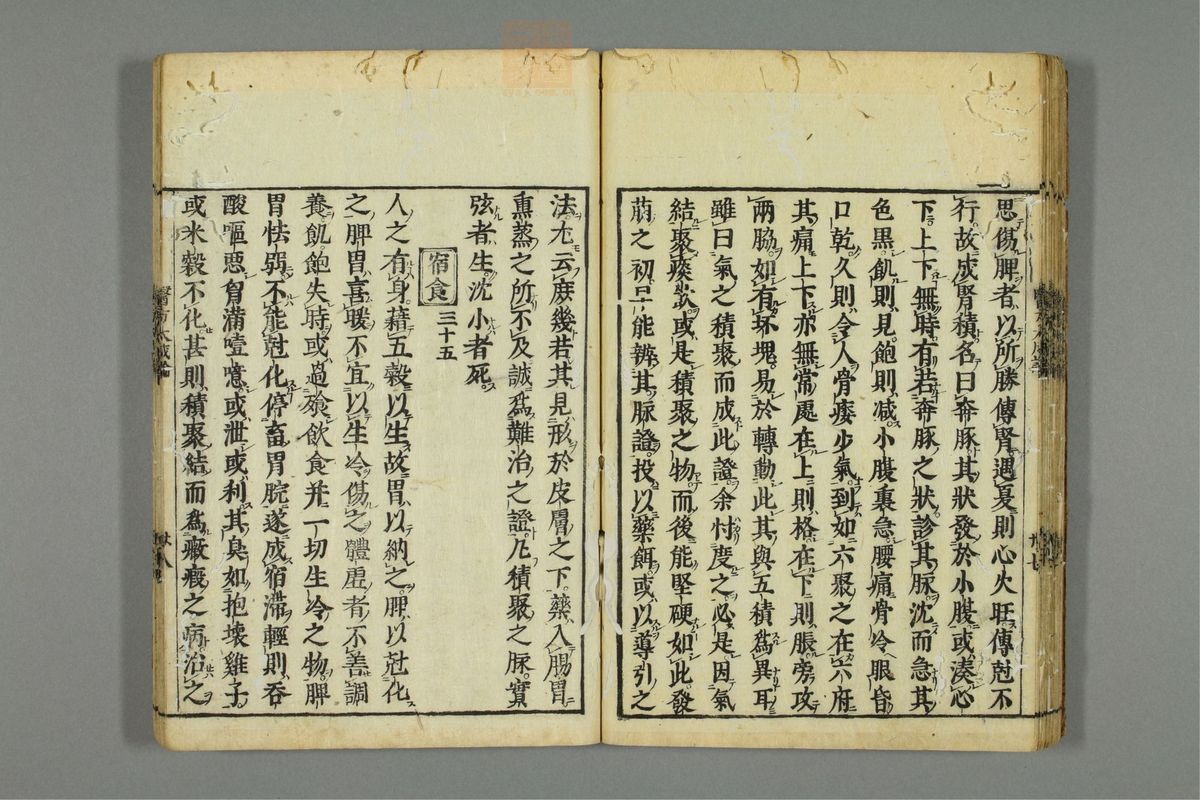 思傷脾者以所勝傳腎遇夏則心火旺傳尅不
行故成腎積名曰奔豚其狀發於小腹或湊心
下上下無時有若奔豚之狀診其脉沈而急其
色黒飢則見飽則減小腹裏急腰痛骨冷眼昏
口乾久則令人骨痿少氣到如六聚之在六府
其痛上下亦無常處在上則格在下則脹旁攻
兩脇如有坏塊易於轉動此其與五積爲異耳
雖曰氣之積聚而成此證余忖度之必是因氣
結聚痰飲或是積聚之物而後能堅硬如此發
萠之初早能辨其脉證投以藥餌或以導引之
法尤云庶幾若其見形於皮膚之下藥入腸胃
熏蒸之所不及誠爲難治之證凢積聚之脉實
弦者生沈小者死
宿食 三十五
人之有身藉五穀以生故胃以納之脾以尅化
之脾胃喜暖不宜以生冷傷之體虗者不善調
養飢飽失時或過飡飲食并一切生冷之物脾
胃怯弱不能尅化停畜胃脘遂成宿滯輕則吞
酸嘔惡胷滿噎噫或泄或利其臭如抱壞雞子
或米穀不化甚則積聚結而爲癥瘕之病治之